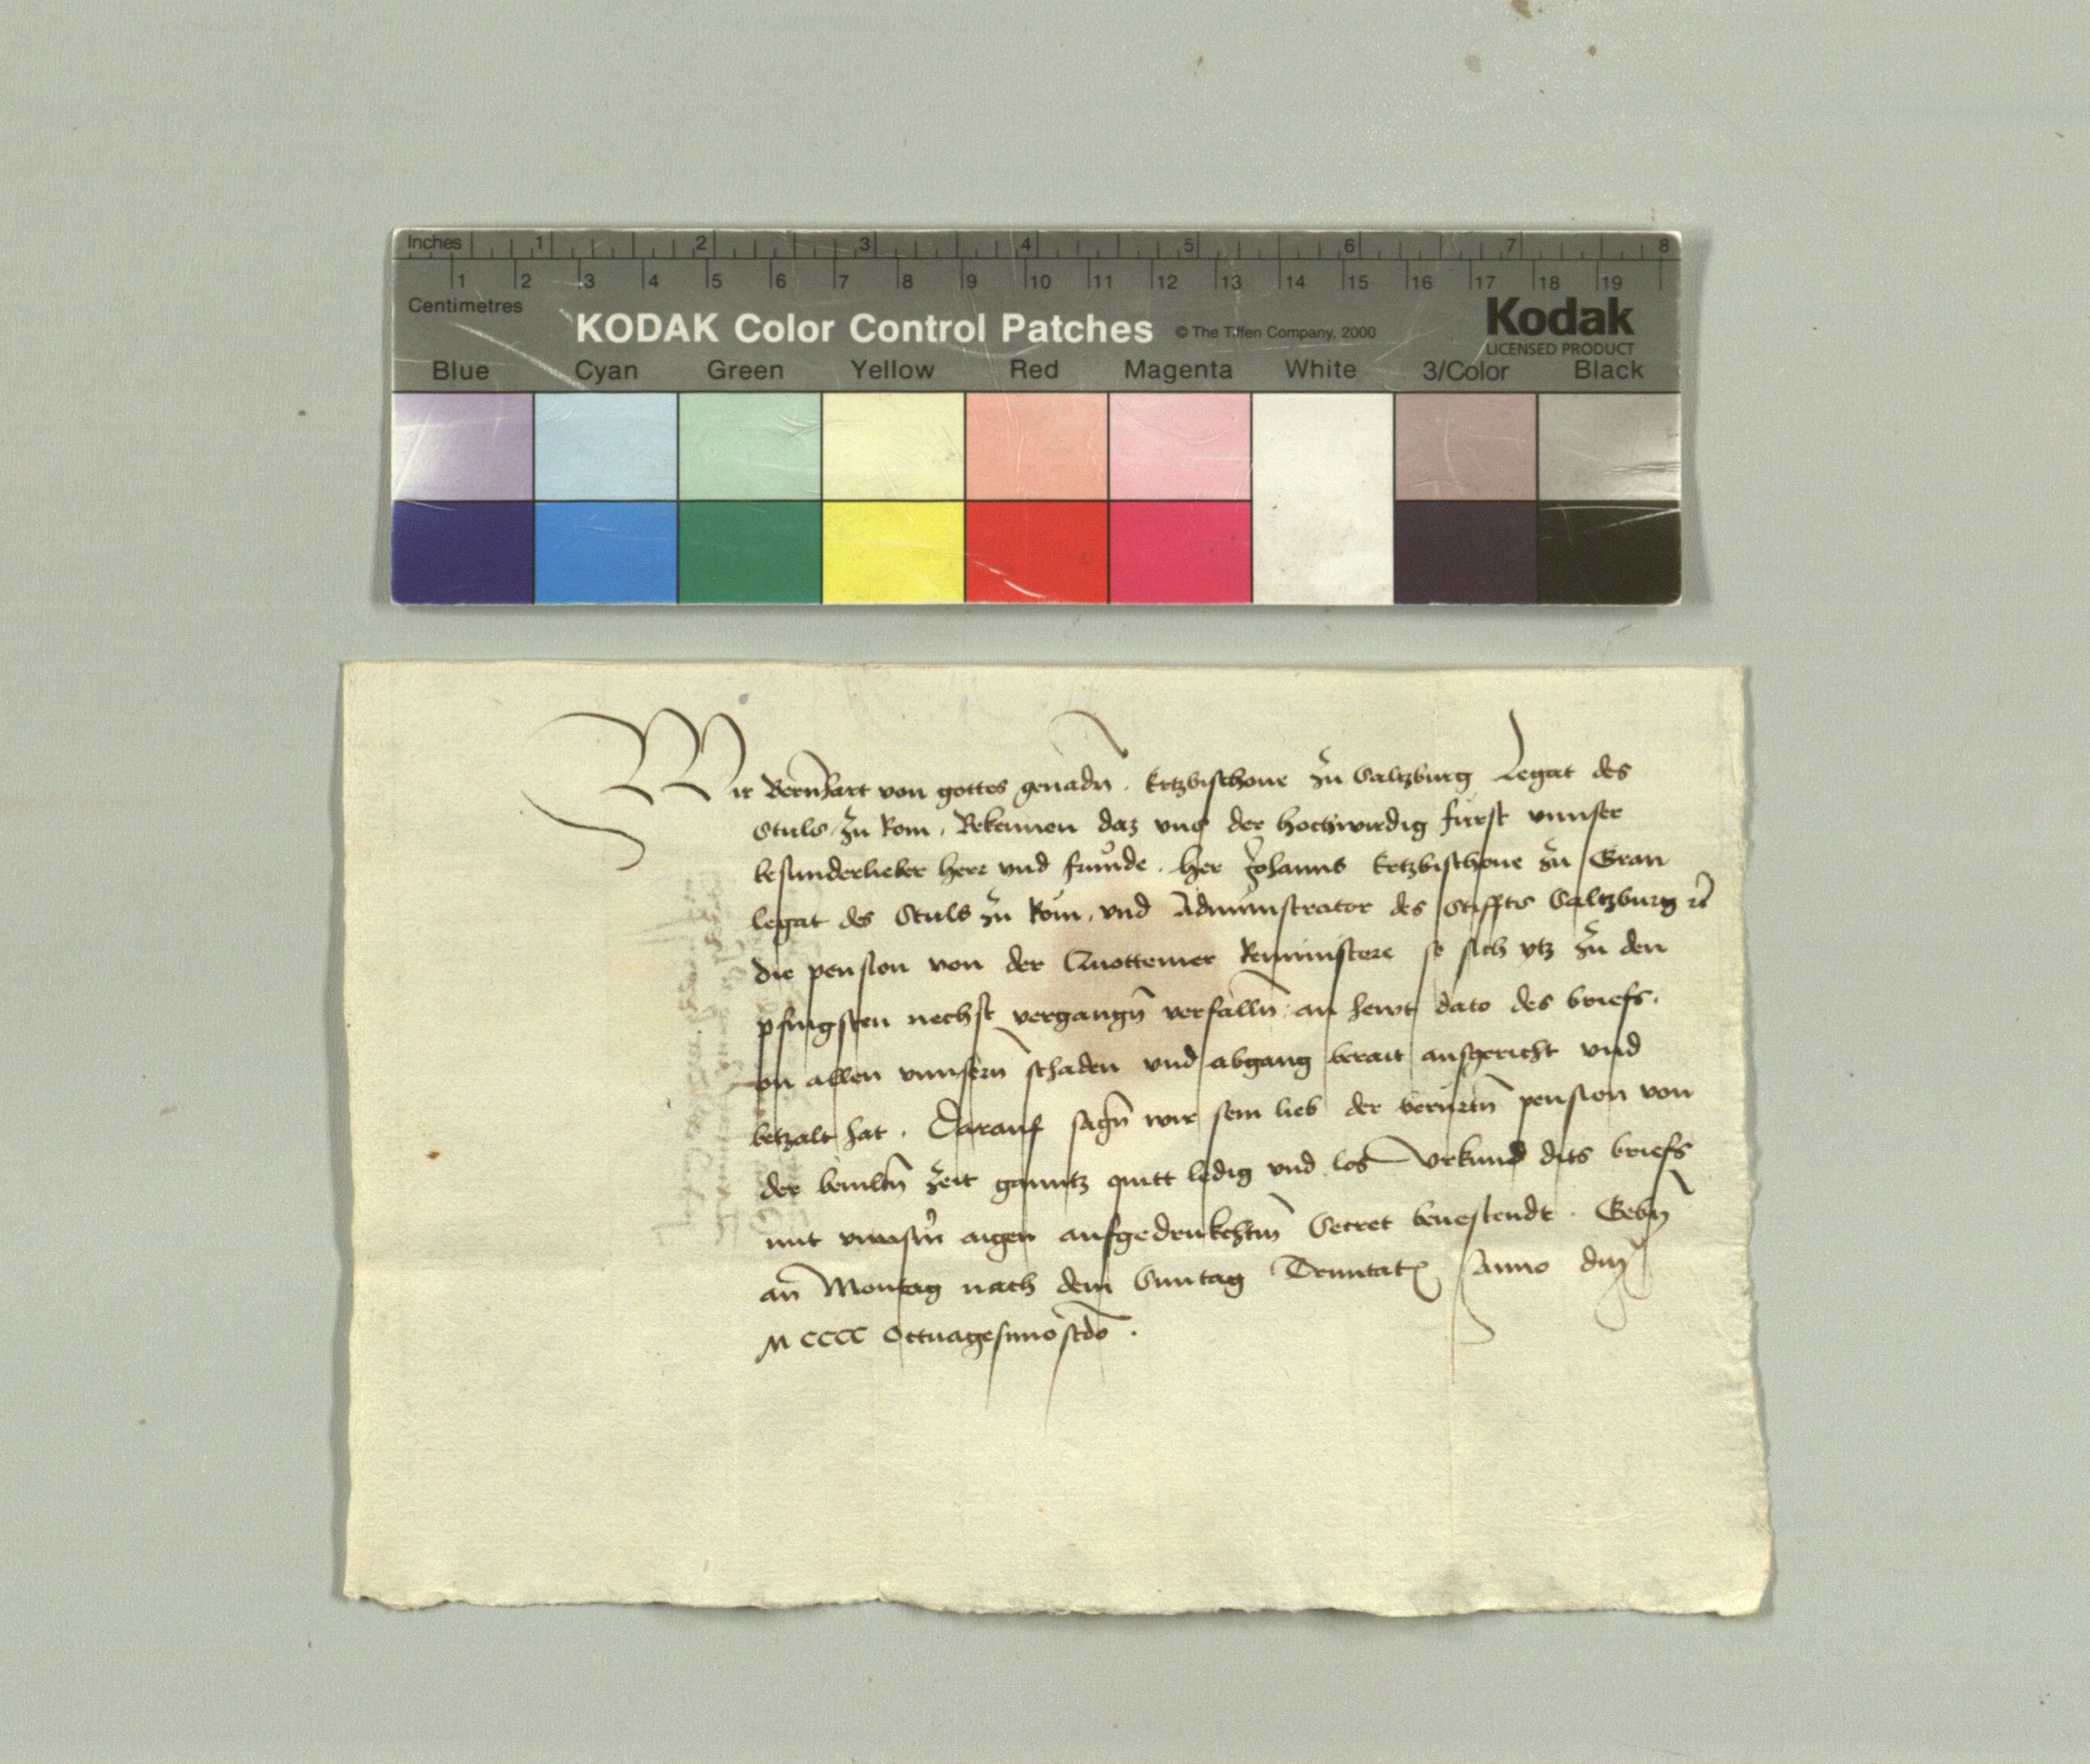 Inches 1 2 3 4 5 6 7 8
1 2 3 4 5 6 7 8 9 10 11 12 13 14 15 16 17 18 19
Centimetres
KODAK Color Control Patches © The Tiffen Company, 2000 Kodak
LICENSED PRODUCT
Blue Cyan Green Yellow Red Magenta White 3/Color Black
Wir Bernhart von gottes genadn̄ . Ertzbischoue zu Saltzburg Legat des
Stuls zu Rom . Bekennen daz vns der hochwirdig fürst vnnser
besunderlieber herr vnd frůnde . her Johanns Ertzbischoue zu Gran
legat des Stuls zu Rom , vnd Administrator des Stiffts Saltzburg ꝛc̄
die pension von der Quottemer Reminiscere so sich ytz zu den
pfingsten nechst vergangn̄ verfalln̄ an hewt dato des briefs .
on allen vnnsern̄ schaden vnd abgang berait ausgericht vnd
betzalt hat . Darauf sagn̄ wir sein lieb der berürtn̄ pension von
der bemltn̄ zeit ganntz quitt ledig vnd los Vrkund dits briefs
mit vnnsm̄ aigen aufgedrukchtm̄ Secret beuestendt . Gebn̄
an Montag nach dem Suntag Trinitatꝭ Anno dn̄j
M CCCC Octuagesimo scdo .